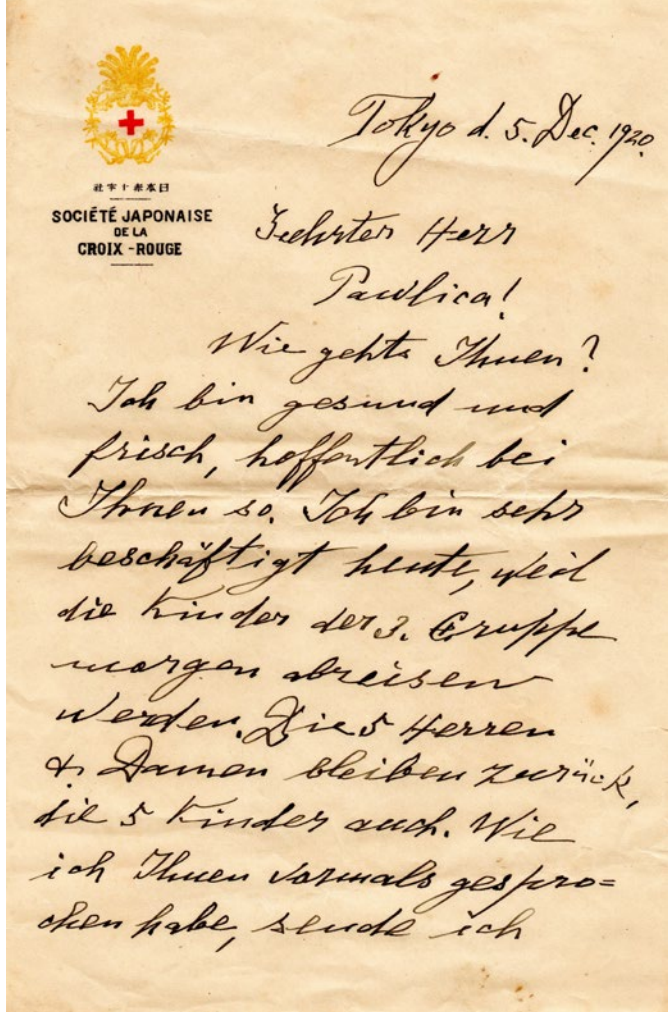 Tokyo d. 5. Dec. 1920.
社字十赤本日
SOCIÉTÉ JAPONAISE
DE LA
CROIX-ROUGE
Geehrter Herr
Pawlica!
Wie gehts Ihnen?
Ich bin gesund und
frisch, hoffentlich bei
Ihnen so. Ich bin sehr
beschäftigt heute, weil
die Kinder der 3. Gruppe
morgen abreisen
werden. Die 5 Herren
& Damen bleiben zurück,
die 5 Kinder auch. Wie
ich Ihnen vormals gespro=
chen habe, sende ich